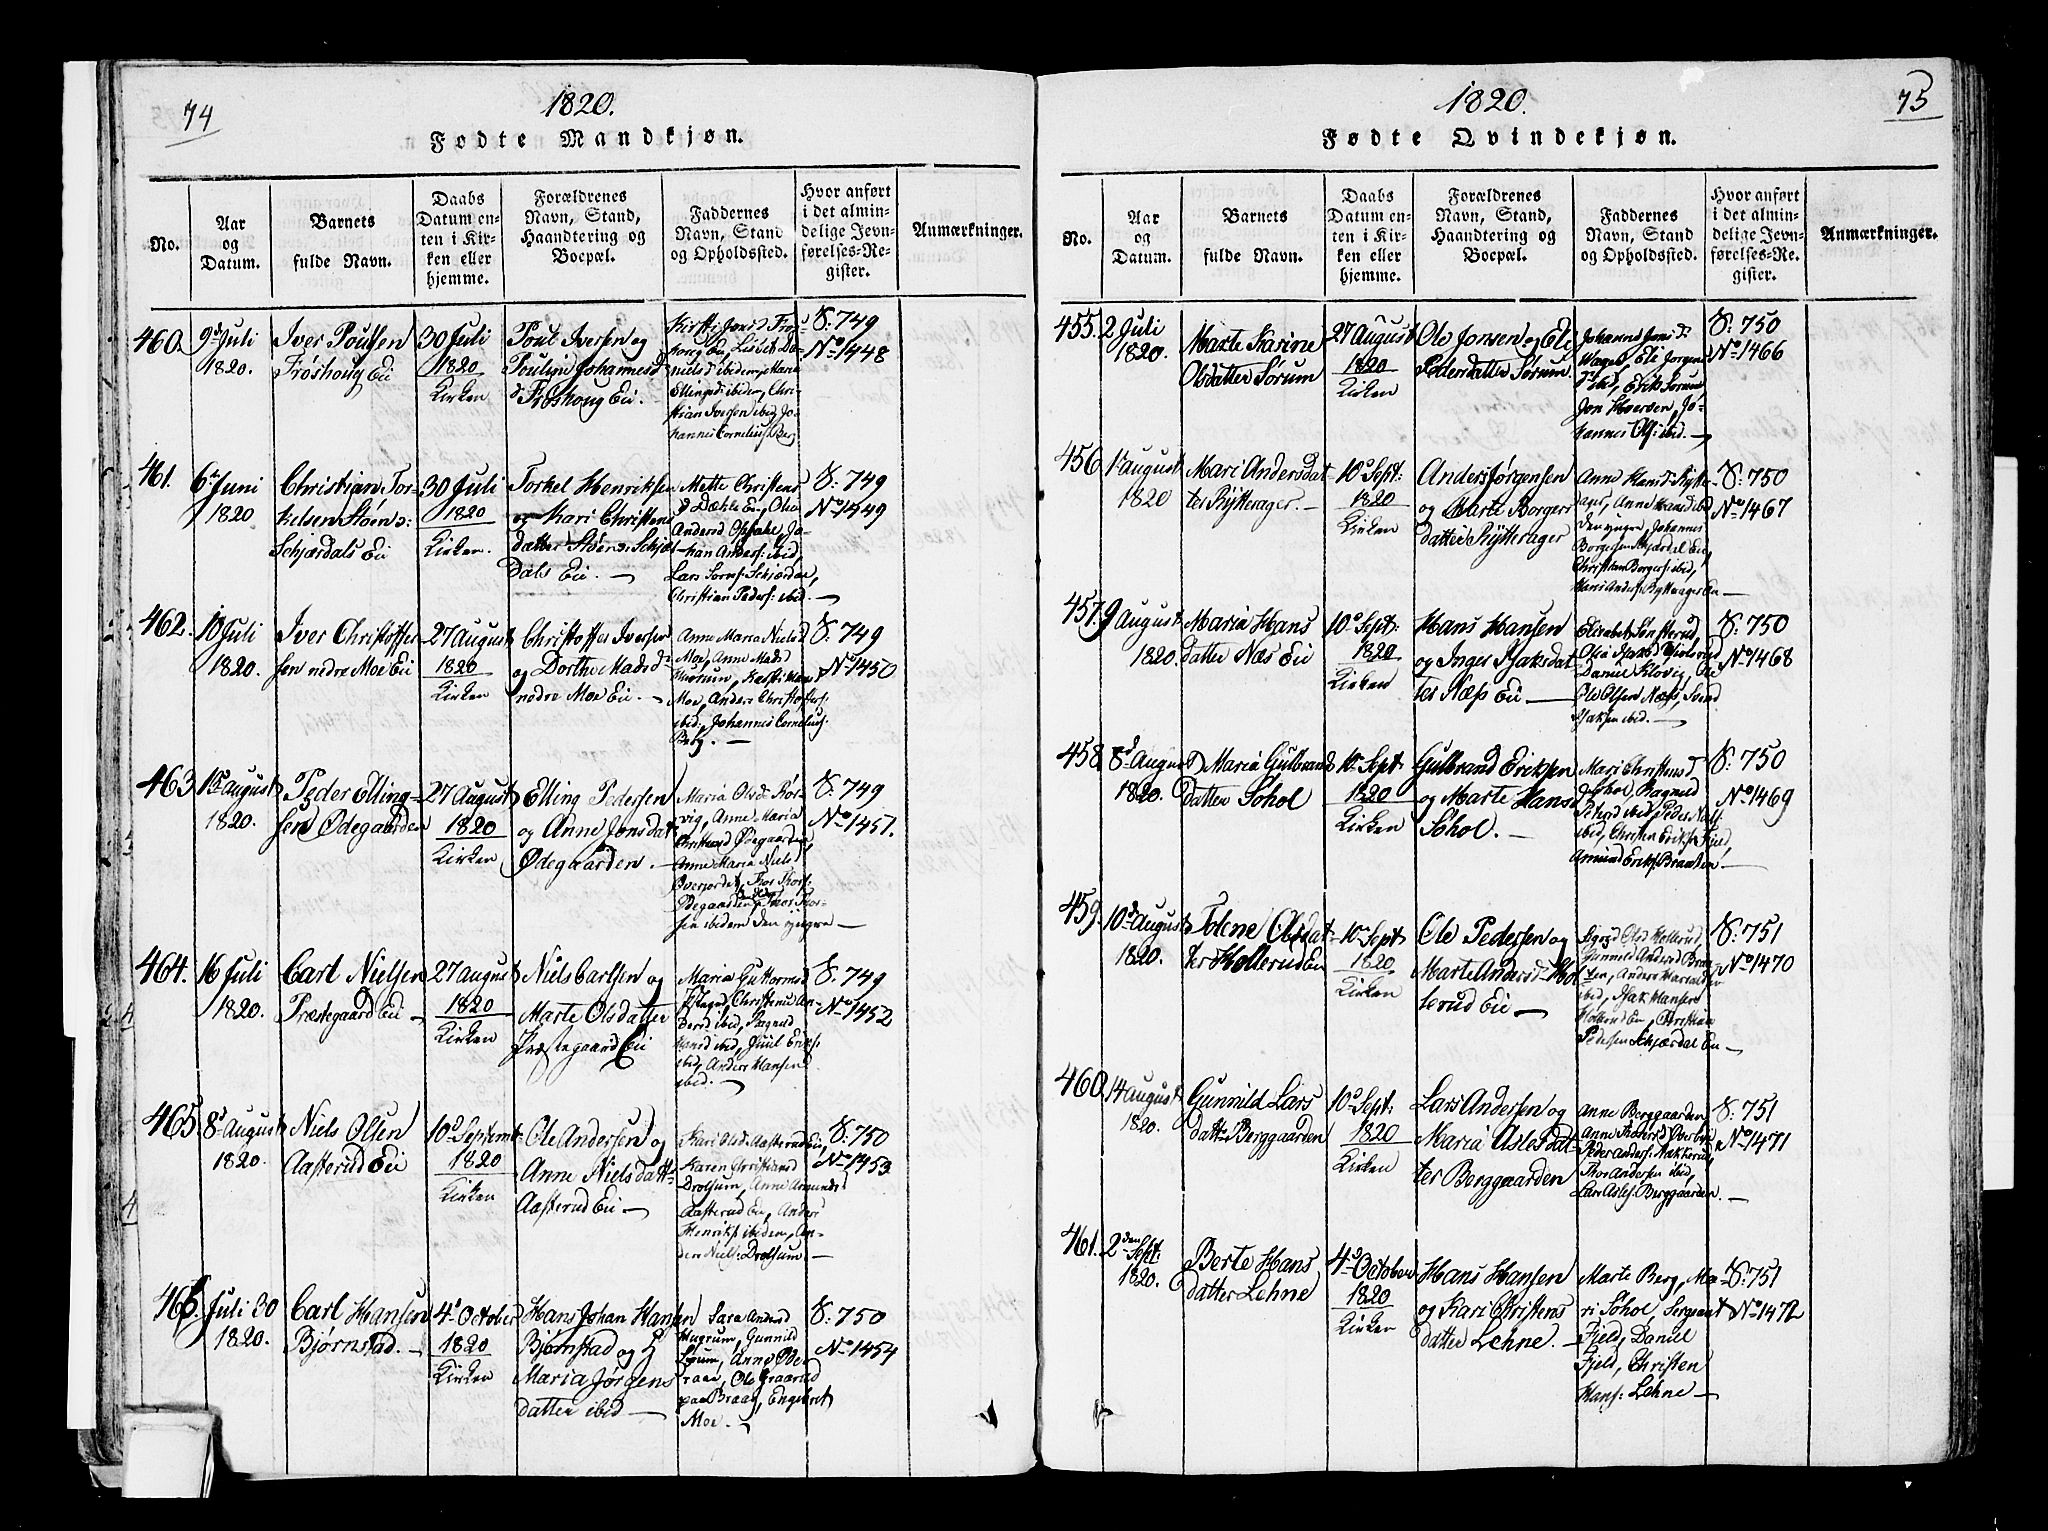 74
1820.
Fødte Mandkjøn.
No.
Aar
og
Datum.
Barnets
fulde Navn.
Daabs
Datum en-
ten i Kir-
ken eller
hjemme.
Forældrenes
Navn, Stand,
Haandtering og
Boepæl.
Faddernes
Navn, Stand
og Opholdssted.
Hvor anført
i det almin-
delige Jevn-
førelses-Re-
gister.
Anmærkninger.
460.
9d Juli
1820.
Iver Poulsen
Frøshoug Eii
30 Juli
1820
Kirken
Poul Iversen og
Pouline Johannesd
Frøshoug Eii.
Kirsti Jonsd Frøs-
houg Eii, Lisbet Da-
nielsd ibidem, Hans
Ellingsd: ibidem, Chri-
stian Iversen ibid, Jo-
hannes Cornelius: Berg
S: 749
No 1448
461.
6te Juni
1820
Christian Tor-
kelsen Støen :
Schjerdals Eii
30 Juli
1820
Kirken.
Torkel Henriksen
og Kari Christens
datter Støen : Schjer-
dals Eii. —
Mette Christens
Eii, Olea
Andersd Opsahl, Jo-
han Anders: ibid
Lars Schjerdal,
Christian Peders: ibid. —
S: 749
No 1449
462.
10 Juli
1820.
Iver Christoffer
sen nedre Moe Eii
27 August
1820
Kirken
Christoffer Iversen
og Dorthe Madsd:
nedre Moe Eii. —
Anne Maria Nielsd
Moe, Anne Madsd
Hurum, Kirsti Hans
Moe, Anders Christoffers:
ibid: Johannes Cornelius:
Berg. —
S: 749
No 1450
463
1ste August
1820.
Peder Elling-
sen Ødegaarden
27 August
1820
Kirken
Elling Pedersen
og Anne Jonsdat
Ødegaarden. —
Maria Olsd: Rør-
vig, Anne Maria
Christensd Ødegaarden,
Anne Maria Niels
Overjordet, Thor Thors:
Ødegaarden, Thor Thor-
sen ibidem den yngre —
S: 749
No 1451.
464.
16 Juli
1820.
Carl Nielsen
Præstegaard Eii —
27 August
1820
Kirken
Niels Carlsen og
Marte Olsdatter
Præstegaard Eii
Maria Guttormsd
Christense An-
dersd ibid, Ragnild
Hansd ibid, Juul Eriks:
ibid, Anders Hansen
ibid. —
S: 749
No 1452
465.
8d August
1820.
Niels Olsen
Aasterud Eii
10d Septemb
1820
Kirken
Ole Andersen og
Anne Nielsdatt:
Aasterud Eii —
Kari Olsd: Aasterud Eii,
Karen Christiansd
Drolsum, Anne Amunds
Aasterud Eii, Anders
Henriks: ibidem, An-
ders Niels: Drolsum —
S: 750
No 1453
466.
Juli 30
1820.
Carl Hansen
Bjørnstad. —
4d October
1820
Kirken
Hans Johan Hansen
Bjørnstad og H
Maria Jørgens
datter ibid —
Sara Andersd
Hugrum, Gunnild
Sørum, Anne
Braae, Ole Graarud
paa Braae, Engebret
Moe. —
S: 750
No 1454
75
1820.
Fødte Qvindekjøn.
No.
Aar
og
Datum.
Barnets
fulde Navn.
Daabs
Datum en-
ten i Kir-
ken eller
hjemme.
Forældrenes
Navn, Stand,
Haandtering og
Boepæl.
Faddernes
Navn, Stand
og Opholdssted.
Hvor anført
i det almin-
delige Jevn-
førelses-Re-
gister.
Anmærkninger.
455.
2 Juli
1820.
Marte Karine
Olsdatter Sørum
27 August
1820
Kirken
Ole Jonsen og Eli
Pedersdatter Sørum.
Johanne Jonsd:
Eli Jørgens
ibid, Erik Sørum
Jon Iversen, Jo-
hannes Ols: ibid. —
S: 750
No 1466
456
1 August
1820
Mari Andersdat
ter Rytterager. —
10d Sept:
1820
Kirken
Anders Jørgensen
og Marte Borgers
datter Rytterager
Anne Hansd: Rytte-
ager, Anne Hansd ibid
den yngre, Johannes
Borgersen Schjerdal Eii,
Christian Borgers: ibid,
Hans Anders: Rytterager Eii —
S: 750
No 1467
457.
9 August
1820.
Maria Hans
datter Næs Eii
10d Sept:
1820
Kirken
Hans Hansen
og Inger Isaksdat
ter Næss Eii —
Elisabet Sønsterud,
Olia Isaksd
Daniel Kløvig,
Ole Olsen Næss, Svend
Isaksen ibid. —
S: 750
No 1468
458.
8d August
1820.
Maria Gulbrands
datter Sohol
10 Sept
1820
Kirken
Gulbrand Eriksen
og Marte Hans
Sohol. —
Mari Christensd
Sohol, Ragnild
ibid, Peder
ibid, Christen Eriks: Fjeld,
Amund Eriks: Braaten —
S: 750
No 1469
459.
10d August
1820.
Tolene Olsdat
ter Hollerud Eii
10 Sept
1820
Kirken
Ole Pedersen og
Marte Andersd: Hol
lerud Eii —
Sigrid Olsd Hollerud,
Gunnild Andersd Bra-
ten, Anders
ibid, Isak Hansen
Hollerud Eii, Christian
Pedersen Schjærdal Eii —
S: 751
No 1470
460.
14 August
1820.
Gunnild Lars
datter Berggaarden
10d Sept:
1820
Kirken
Lars Andersen og
Maria Aslesdat-
ter Berggaarden
Anne Berggaarden
Anne
Peder Anders:
Thor Andersen ibid,
Lars Asles: Berggaarden —
S: 751
No 1471
461.
2den Sept:
1820.
Berte Hans
datter Lehne
4d October
1820
Kirken
Hans Hansen
og Kari Christens
datter Lehne. —
Marte Berg, Ma-
ri Sohol, Sergeant
Fjeld, Daniel
Fjeld, Christen
Hans: Lehne —
S: 751
No 1472